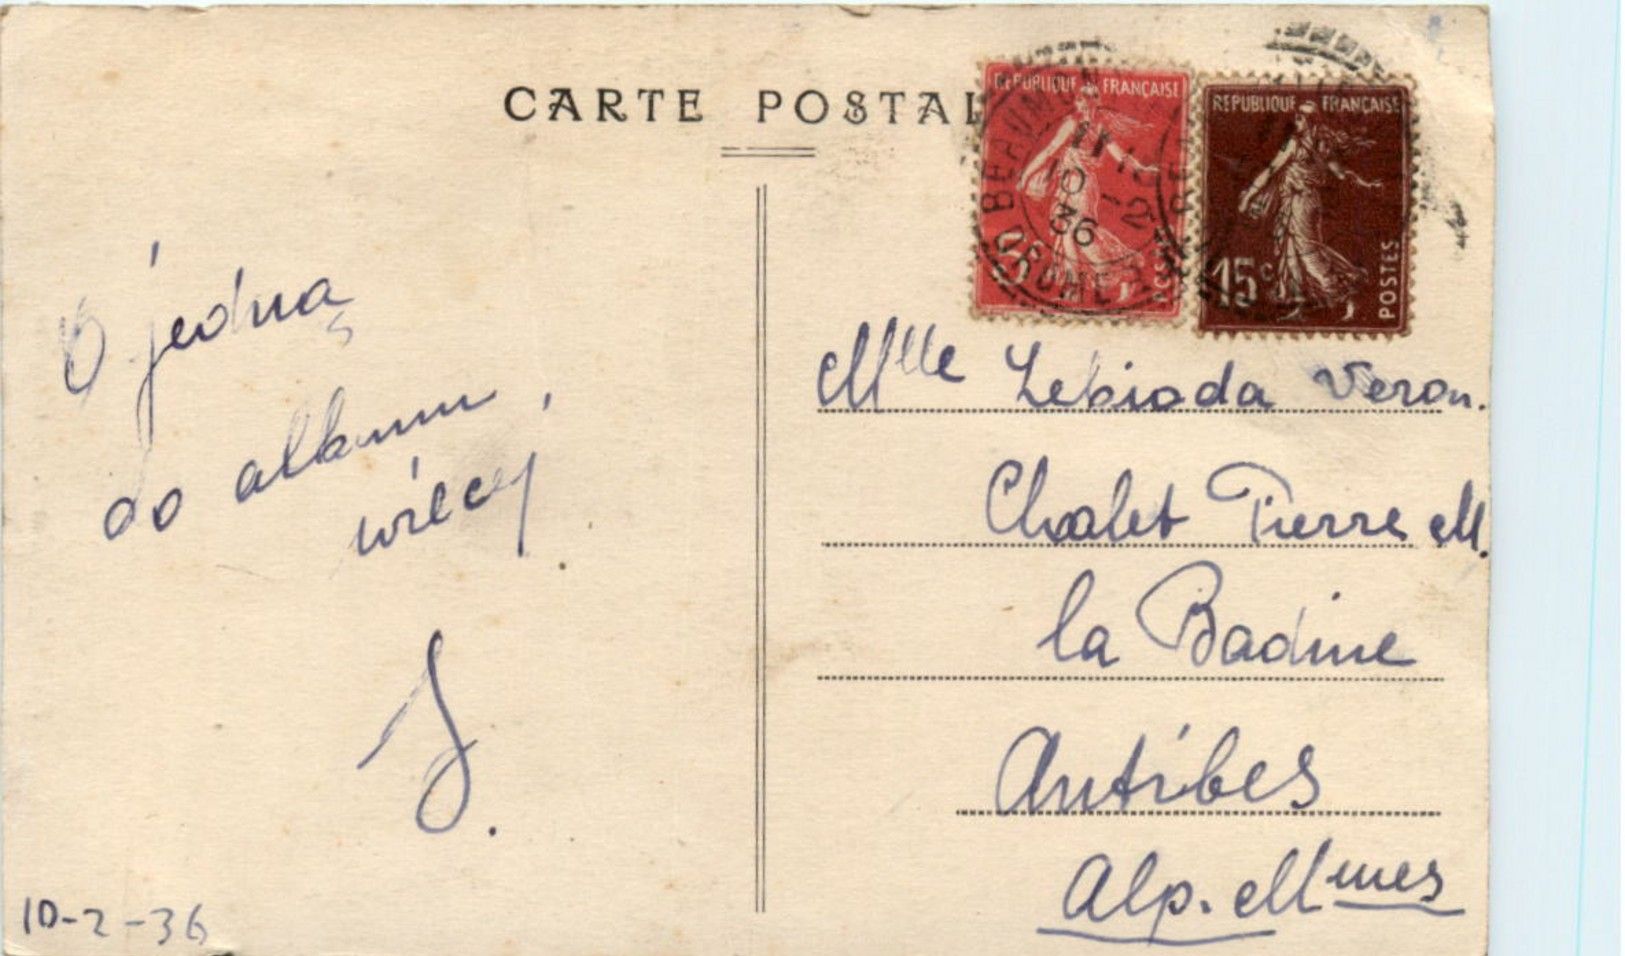 CARTE POSTAL
REPUBLIQUE FRANÇAISE
REPUBLIQUE FRANÇAISE
15c
POSTES
BEAUMON
11
10 -2
36
DROME
O jedną
do albumu,
więcej
J.
10-2-36
Mlle Lebioda Veron.
Chalet Pierre M.
la Badine
Antibes
Alp. Mmes